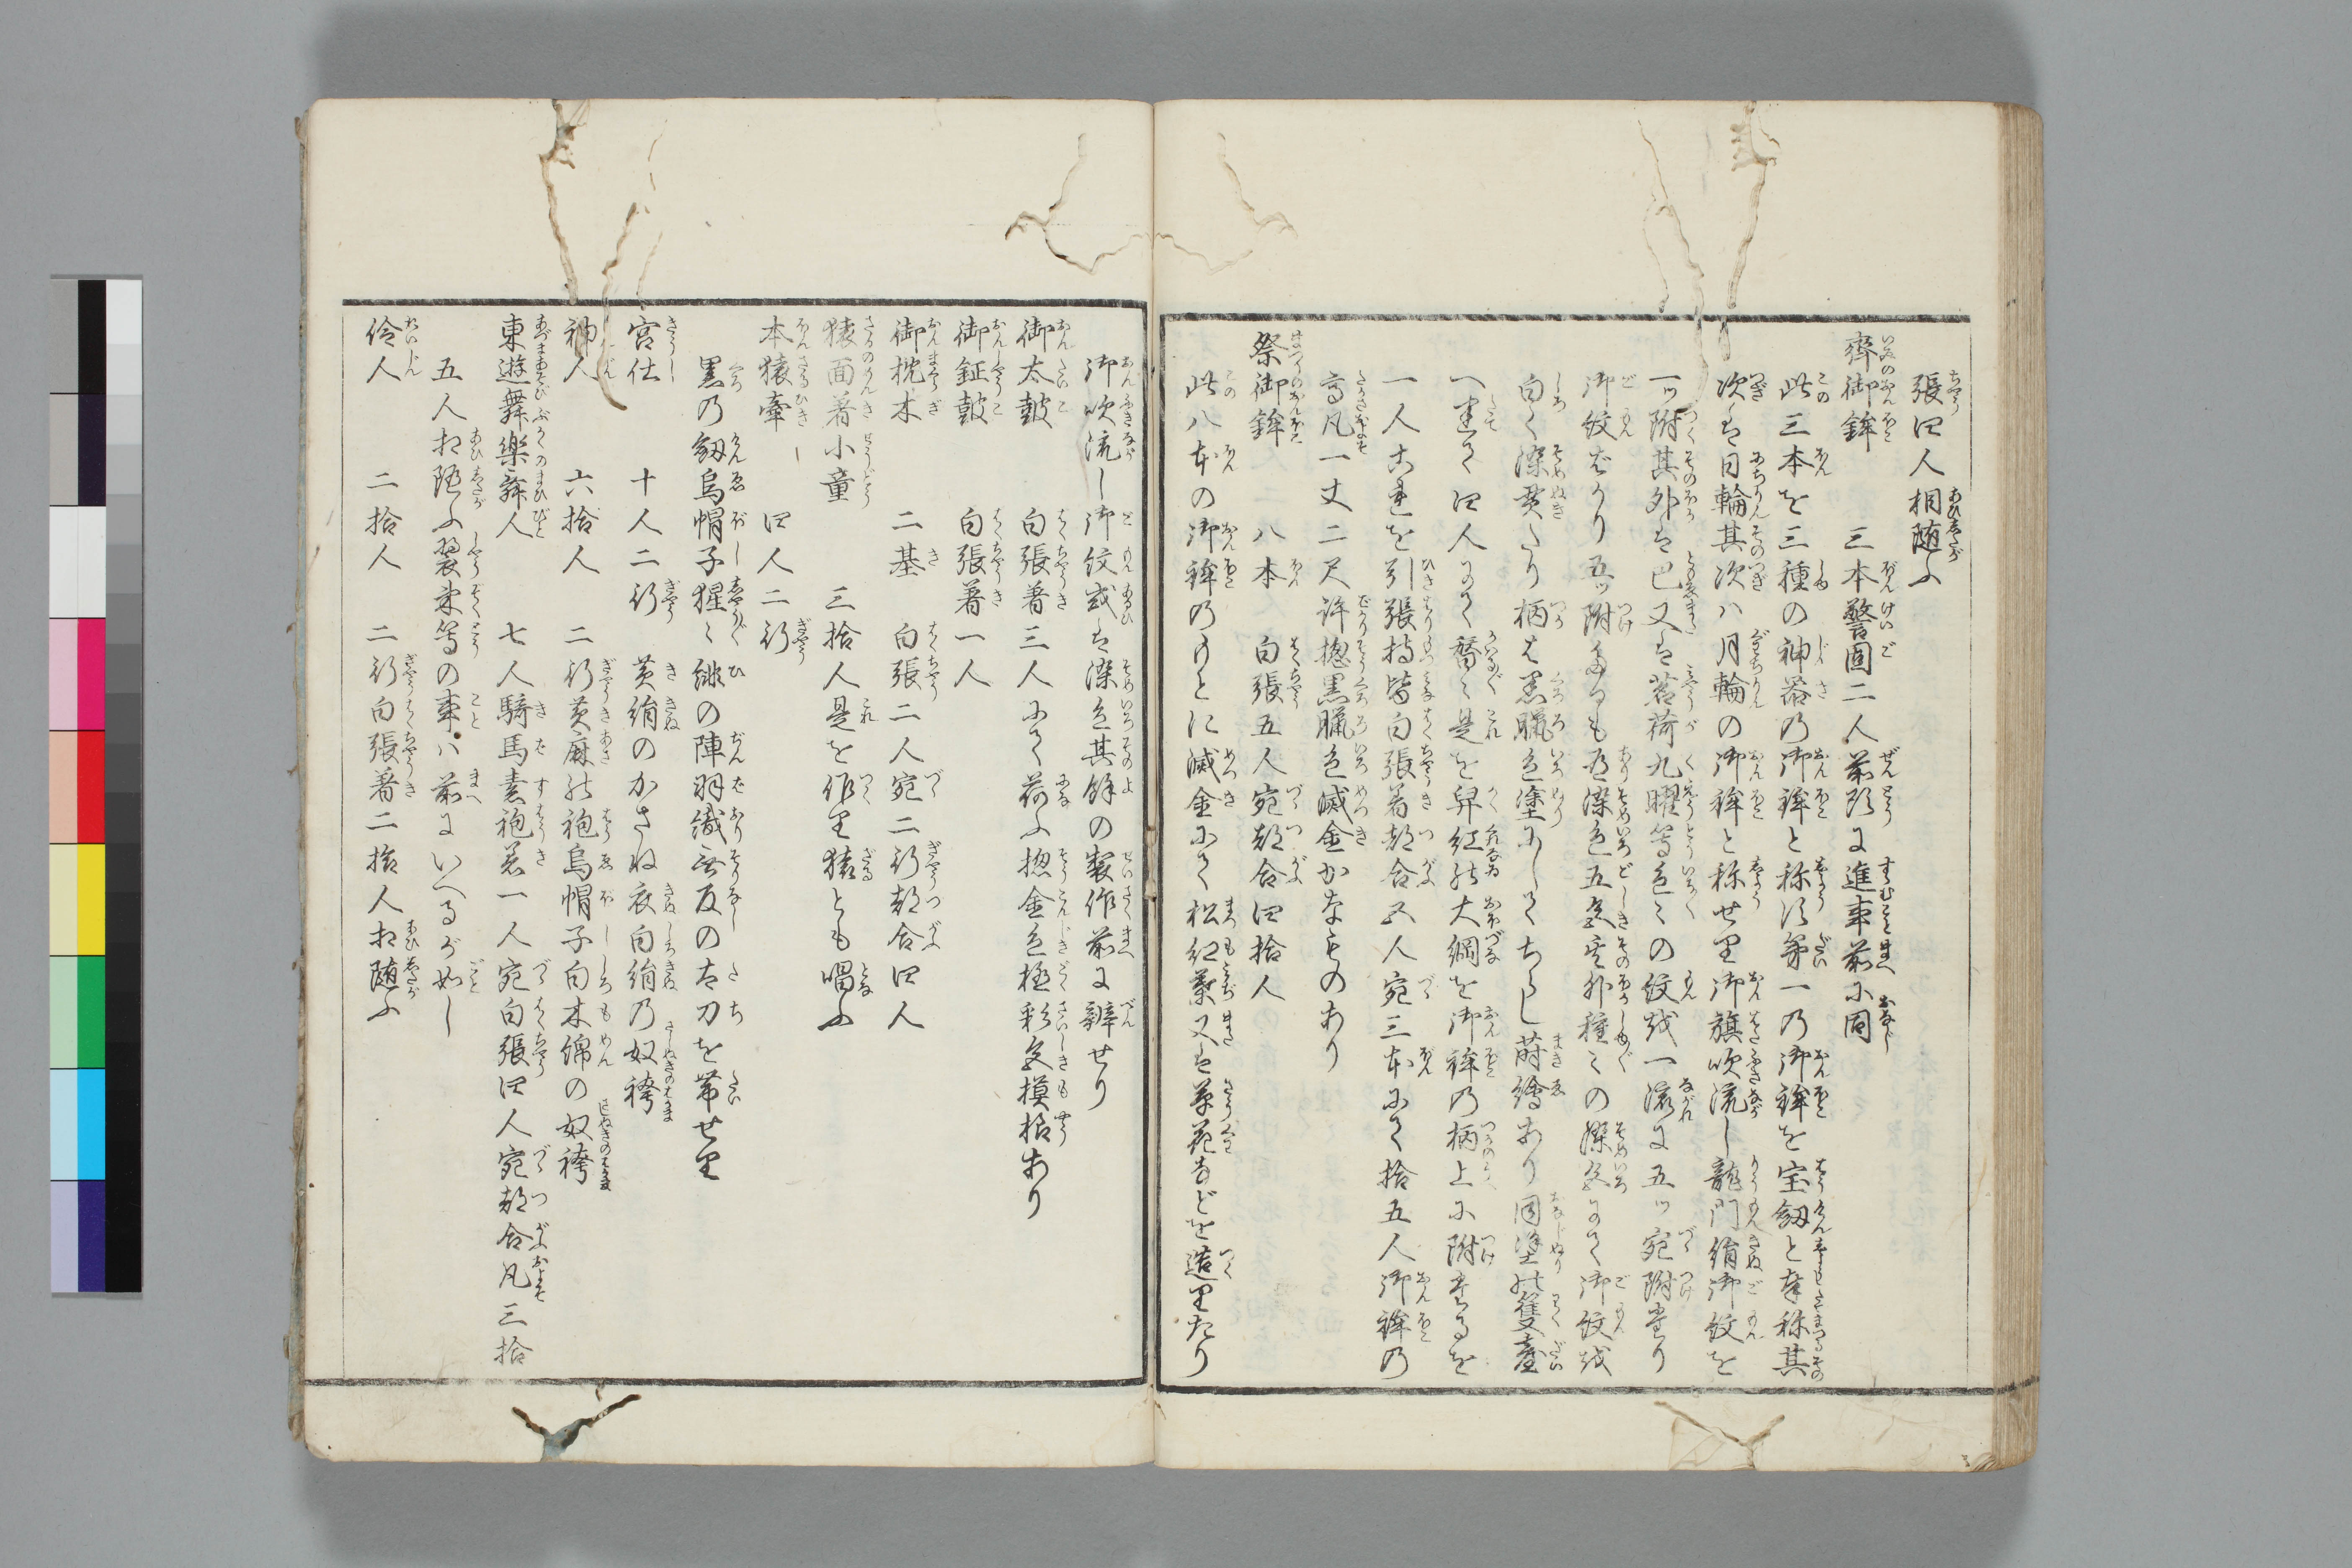 張四人相随ふ
齊御鉾　三本警固二人前駈に進事前に同
此三本を三種の神器の御鉾と称す第一の御鉾を宝劔と奉称其
次は日輪其次ハ月輪の御鉾と称せり御旗吹流し龍門絹御紋を
一ッ附其外は巴又は茗荷九曜等色〻の紋を一流に五ッ宛附たり
御紋ばかり五ッ附たるも有染色五色其外種〻の染色にて御紋を
白く染貫たり柄は黒臘色塗にしてちらし蒔繪あり同塗の篗臺
へ建て四人にて舁〻是を舁紅の大綱を御鉾の柄上に附たるを
一人
一人を引張持皆白張着都合五人宛三本にて拾五人御鉾の
高凡一丈二尺許摠黒臘色滅金かなものあり
祭御鉾　八本　白張五人宛都合四拾人
此八本の御鉾のもとに滅金にて松紅葉又は草花などを造りたり
御吹流し御紋或は染色其餘の製作前に辨せり
御太皷　白張着三人にて荷ふ摠金色極彩色模様あり
御鉦皷　白張着一人
御枕木　二基　白張二人宛二行都合四人
猿面着小童　三拾人是を作り猿とも唱ふ
本猿牽　四人二行
黒の劔烏帽子猩〻緋の陣羽織無反の太刀を帯せり
宮仕　十人二行　黄絹のかさね衣白絹の奴袴
神人　六拾人　二行黄麻の袍烏帽子白木綿の奴袴
東遊舞樂舞人　七人騎馬素袍着一人宛白張四人宛都合凡三拾
五人相随ふ装束等の事ハ前にいへるが如し
伶人　二拾人　二行白張着二拾人相随ふ